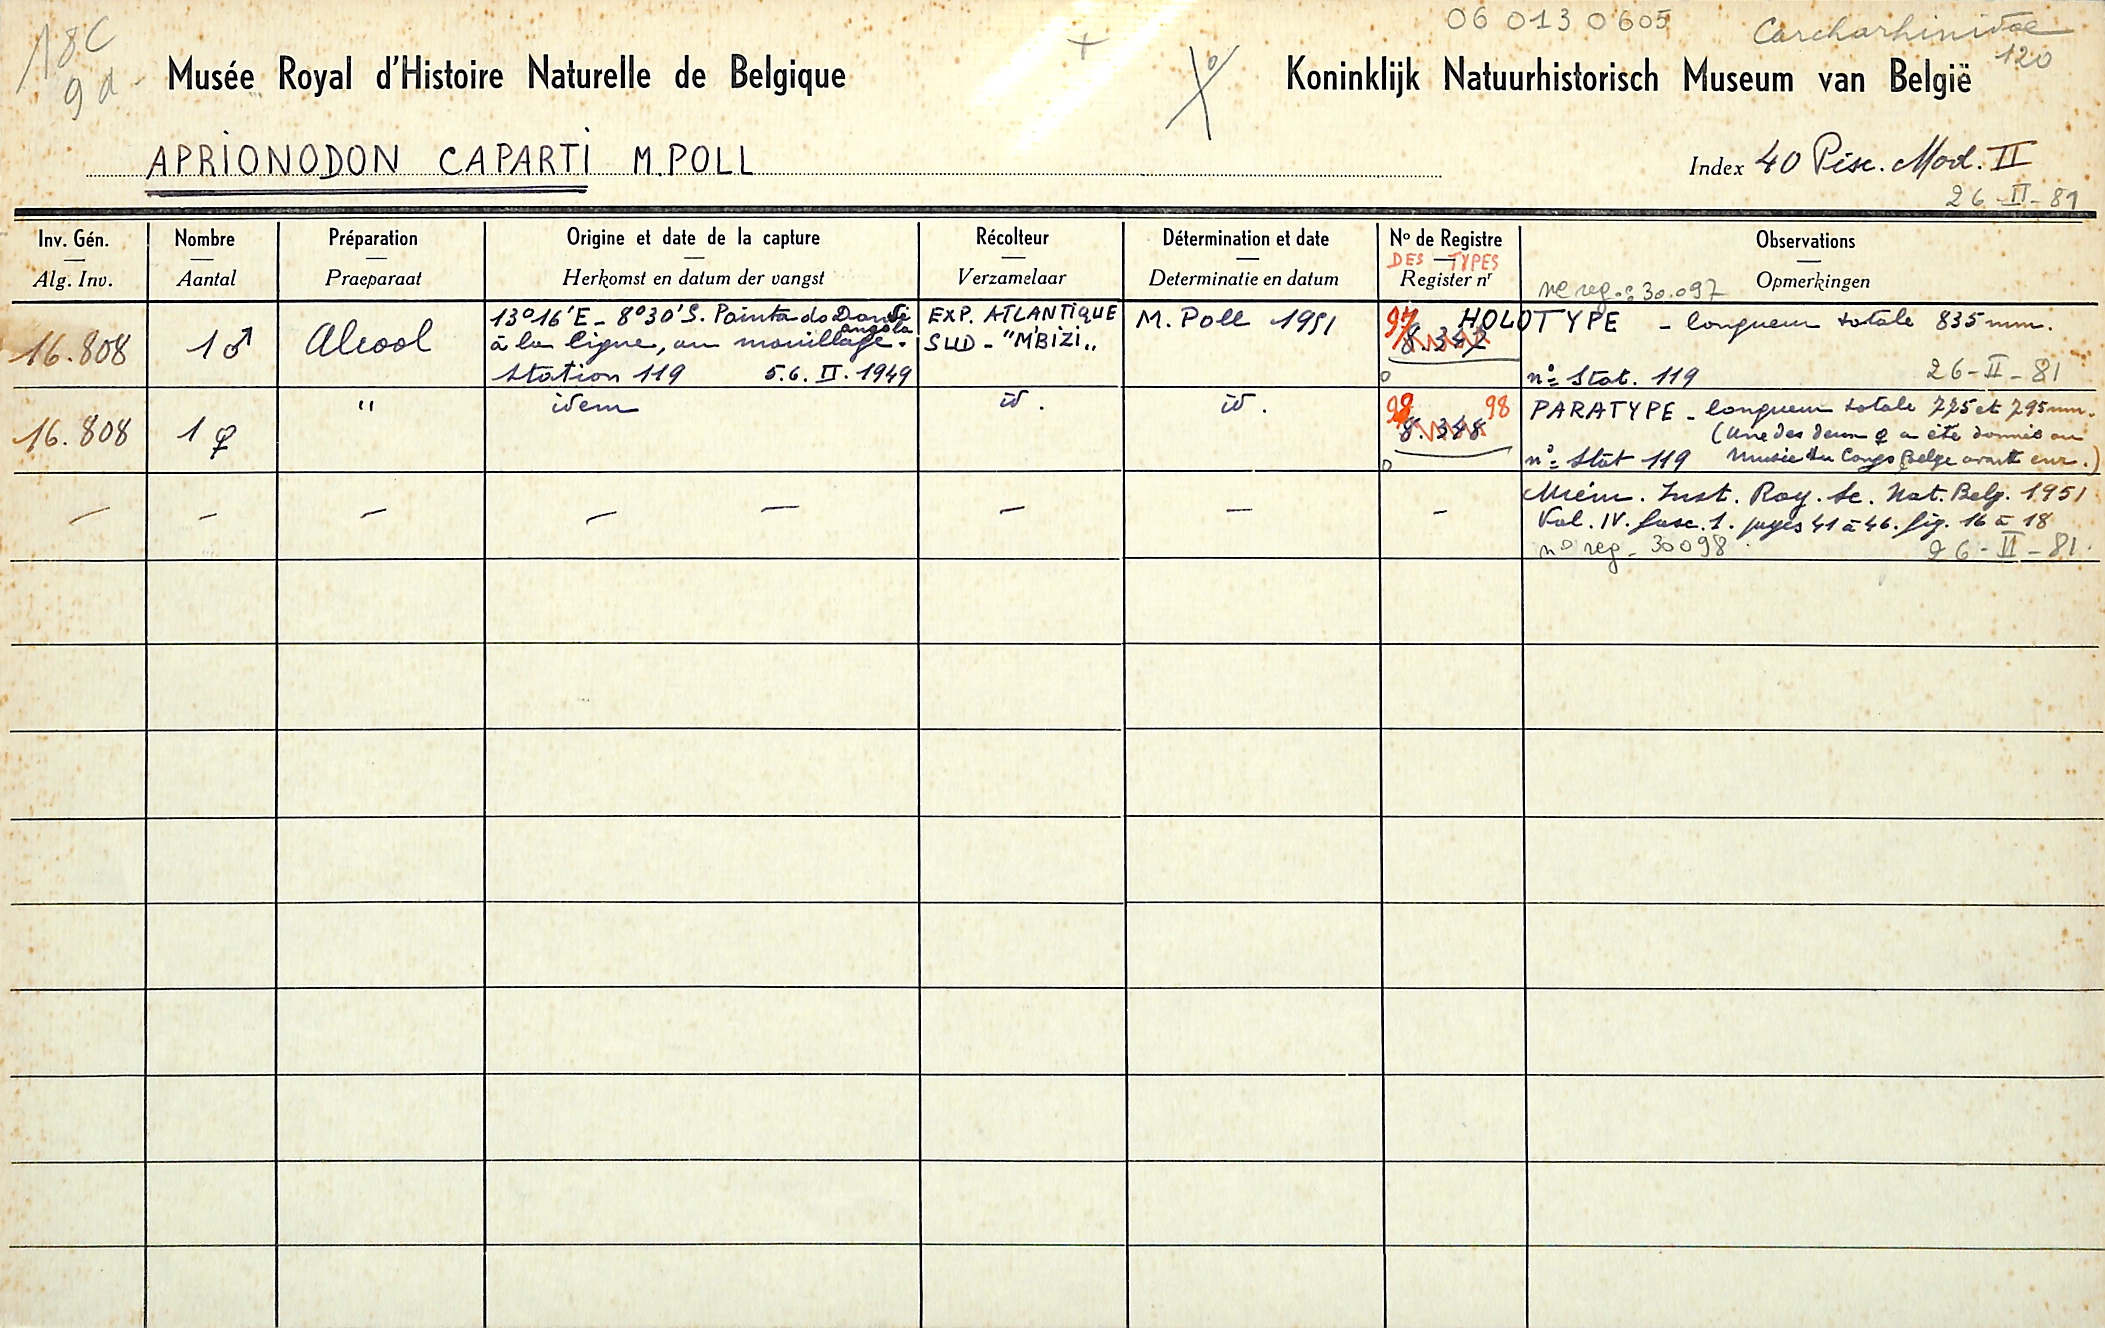 18C
9d-
06 013 0605
Carcharhinidae
120
Musée Royal d'Histoire Naturelle de Belgique
Koninklijk Natuurhistorisch Museum van België
APRIONODON CAPARTI M. POLL
Index 40 Pisc. Mod. II
26-II-81
Inv. Gén. Nombre Préparation Origine et date de la capture Récolteur Détermination et date No de Registre Observations
DES TYPES
Alg. Inv. Aantal Praeparaat Herkomst en datum der vangst Verzamelaar Determinatie en datum Register nr Opmerkingen
no reg. : 30.097
16.808 1 ♂ Alcool
13°16'E - 8°30'S. Pointa do Dande
angola
à la ligne, au mouillage.
Station 119 5.6. II. 1949
EXP. ATLANTIQUE
SUD - "MBIZI"
M. Poll 1951
97
8.347
HOLOTYPE - longueur totale 835 mm.
n° Stat. 119 26-II-81
16.808 1 ♀ " idem id. id.
98 98
8.348
PARATYPE - longueur totale 775 et 795 mm.
(Une des deux ♀ a été donnée au
n° Stat 119 Musée du Congo Belge avant enr.)
- - - - - - - -
Mém. Inst. Roy. Sc. Nat. Belg. 1951
Vol. IV. fasc. 1. pages 41 à 46. fig. 16 à 18
n° reg - 30098 26-II-81.